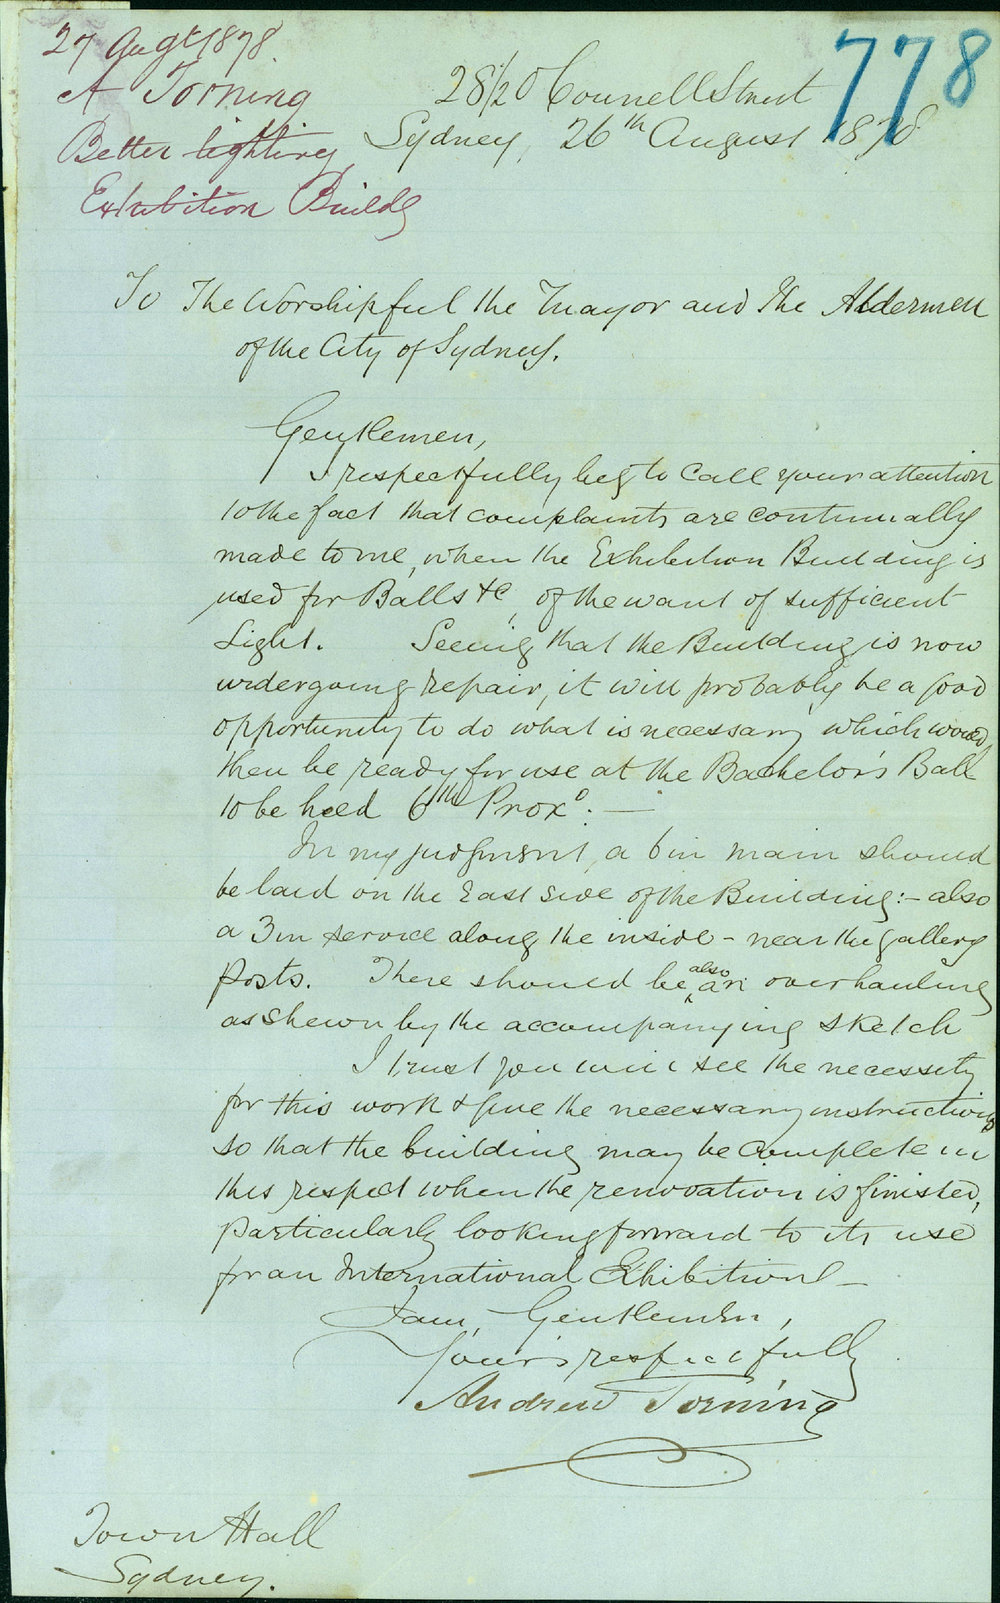 27 Augt 1878
A Torning
Better lighting
Exhibition Buildg
778
28 1/2 O'Connell Street
Sydney, 26th August 1878
To The Worshipful the Mayor and the Aldermen
of the City of Sydney.
Gentlemen,
I respectfully beg to call your attention
to the fact that complaints are continually
made to me, when the Exhibition Building is
used for Balls &c, of the want of sufficient
Light. Seeing that the Building is now
undergoing repair, it will probably be a good
opportunity to do what is necessary, which would
then be ready for use at the Bachelor's Ball
to be held 6th Proxo. —
In my judgment, a 6 in main should
be laid on the East side of the Building:- also
a 3 in service along the inside - near the gallery
posts. There should be also an overhauling
as shewn by the accompanying sketch
I trust you will see the necessity
for this work & give the necessary instructions
so that the building may be complete in
this respect when the renovation is finished,
particularly looking forward to its use
for an International Exhibition —
I am, Gentlemen,
Your's respectfully
Andrew Torning
Town Hall
Sydney.